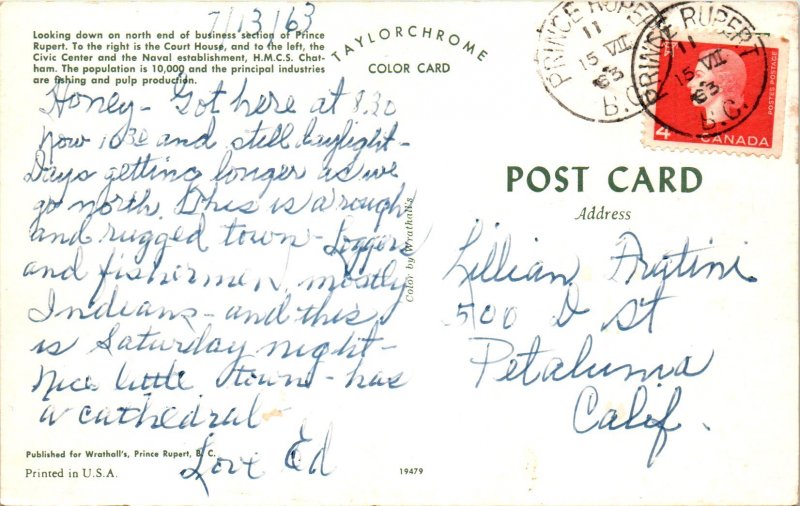 7/13/63
Looking down on north end of business section of Prince
Rupert. To the right is the Court House, and to the left, the
Civic Center and the Naval establishment, H.M.C.S. Chat-
ham. The population is 10,000 and the principal industries
are fishing and pulp production.
TAYLORCHROME
COLOR CARD
Honey - Got here at 8.30
now 10 30 and still daylight -
Days getting longer as we
go north. This is a rough
and rugged town - Loggers
and fishermen, mostly
Indians - and this
is Saturday night -
Nice little town - has
a cathedral -
Love Ed
Published for Wrathall's, Prince Rupert, B. C.
Printed in U.S.A.
19479
Color by Wrathall's
PRINCE RUPERT
11
15 VII
63
B.C.
PRINCE RUPERT
11
15 VII
63
B.C.
POSTES POSTAGE
4
CANADA
POST CARD
Address
Lillian
500 D St
Petaluma
Calif.